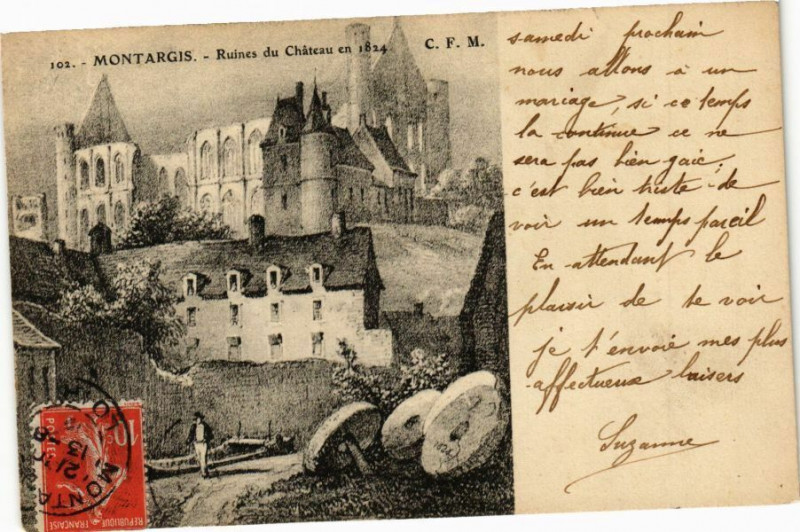 102. - MONTARGIS. - Ruines du Château en 1824 C. F. M.
samedi prochain
nous allons à un
mariage, si ce temps
la continue ce ne
sera pas bien gaie,
c'est bien triste de
voir un temps pareil
En attendant le
plaisir de te voir
je t'envoie mes plus
affectueux baisers
Suzanne
10c
POSTES
REPUBLIQUE FRANÇAISE
MONTA